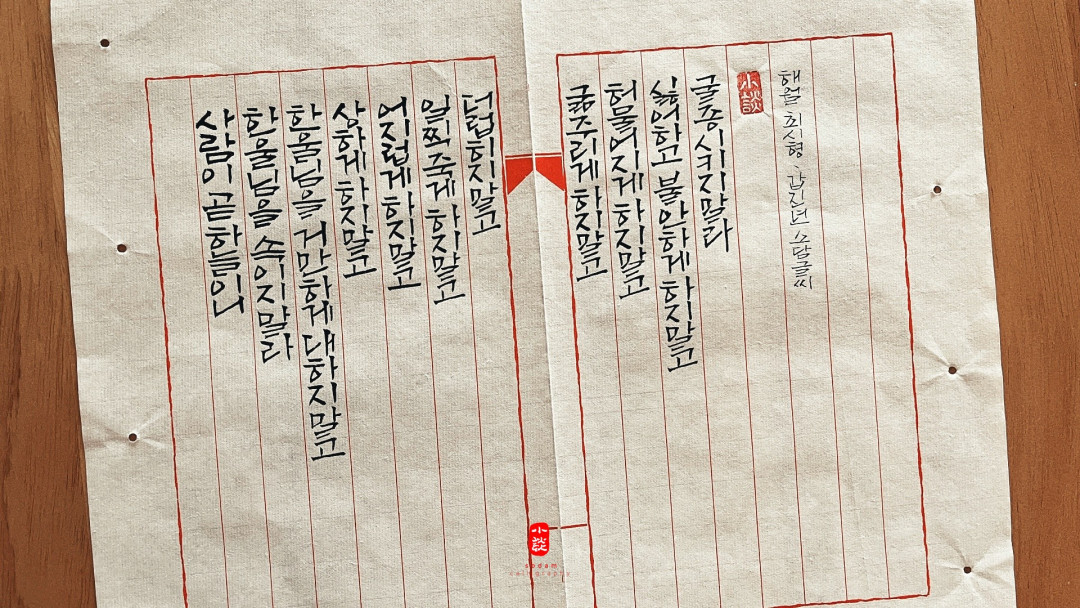 사람이 곧 하늘이니
한울님을 속이지말라
한울님을 거만하게 대하지말고
상하게 하지말고
어지럽게 하지말고
일찍 죽게 하지말고
더럽히지말고
굶주리게 하지말고
허물어지게 하지말고
싫어하고 불안하게 하지말고
굴종시키지말라
小談
해월 최시형, 갑진년 소담글씨
小談
sodam
calligraphy